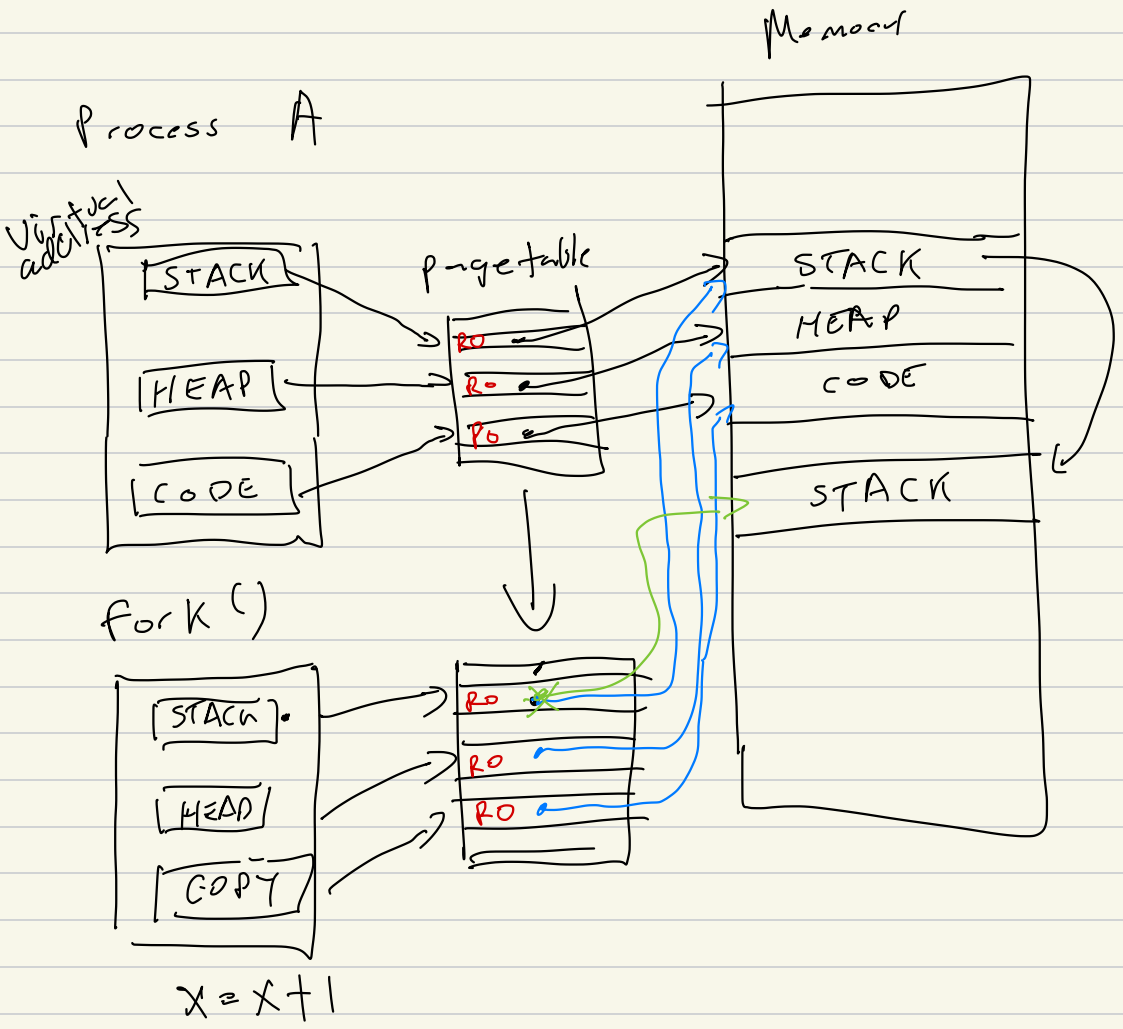 Memory
Process A
Virtual
address
STACK
HEAP
CODE
pagetable
RO
RO
RO
STACK
HEAP
CODE
STACK
fork()
STACK
HEAP
COPY
RO
RO
RO
x = x + 1